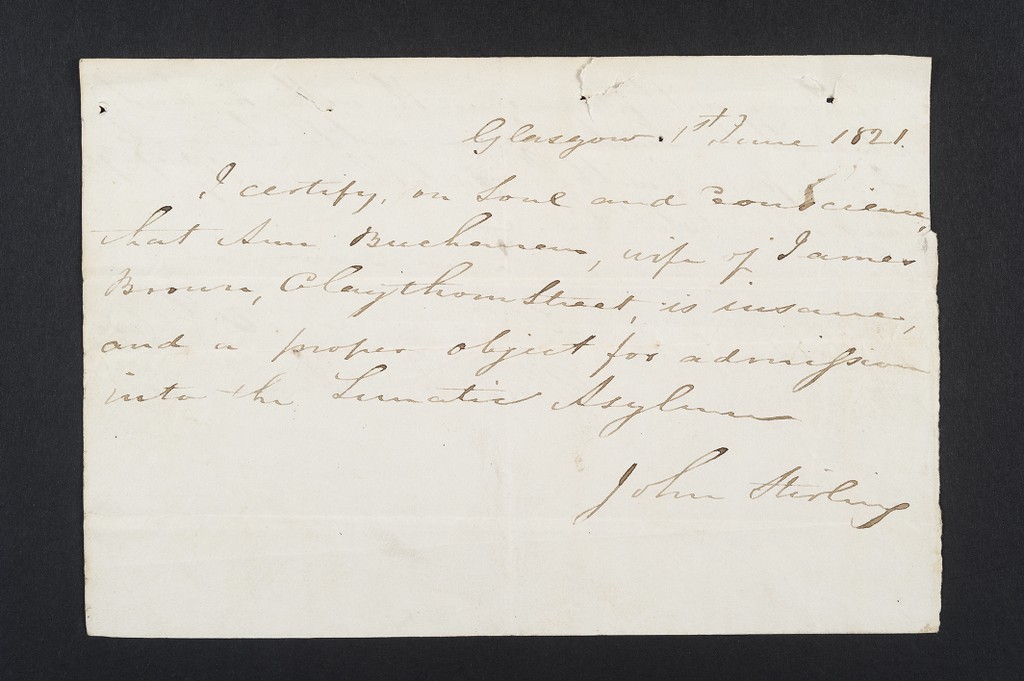 Glasgow. 1st June 1821.
I certify, on Soul and Conscience,
that Ann Buchanan, wife of James
Brown, Claythorn Street, is insane,
and a proper object for admission
into the Lunatic Asylum
John Stirling